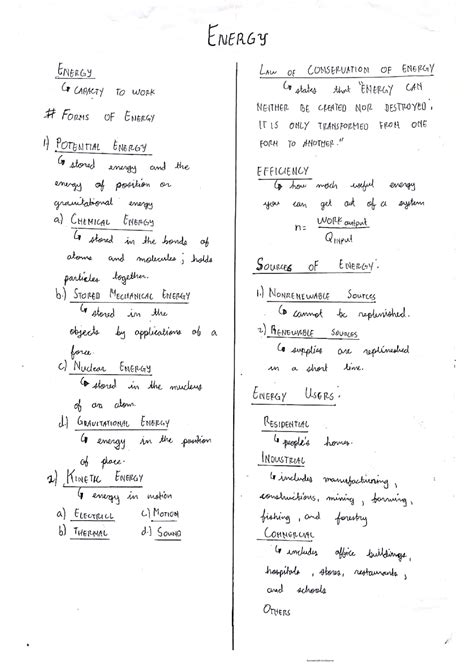 ENERGY
ENERGY
↳ CAPACTY TO WORK
# FORMS OF ENERGY
1) POTENTIAL ENERGY
↳ stored energy and the
energy of position or
gravitational energy
a) CHEMICAL ENERGY
↳ stored in the bonds of
atoms and molecules; holds
particles together.
b.) STORED MECHANICAL ENERGY
↳ stored in the
objects by applications of a
force.
c) NUCLEAR ENERGY
↳ stored in the nucleus
of an atom.
d.) GRAVITATIONAL ENERGY
↳ energy in the position
of place.
2) KINETIC ENERGY
↳ energy in motion
a) ELECTRICL c.) MOTION
b) THERMAL d.) SOUND
LAW OF CONSERVATION OF ENERGY
↳ states that "ENERGY CAN
NEITHER BE CREATED NOR DESTROYED;
IT IS ONLY TRANSFORMED FROM ONE
FORM TO ANOTHER."
EFFICIENCY
↳ how much useful energy
you can get out of a system
n = WORK output
Q INPUT
SOURCES OF ENERGY:
1.) NONRENEWABLE SOURCES
↳ cannot be replenished.
2) RENEWABLE SOURCES
↳ supplies are replinished
in a short time.
ENERGY USERS:
RESIDENTIAL
↳ people's homes.
INDUSTRIAL
↳ includes manufacturing,
constructions, mining, farming,
fishing, and forestry
COMMERCIAL
↳ includes office buildings,
hospitals, stores, restaurants,
and schools
OTHERS